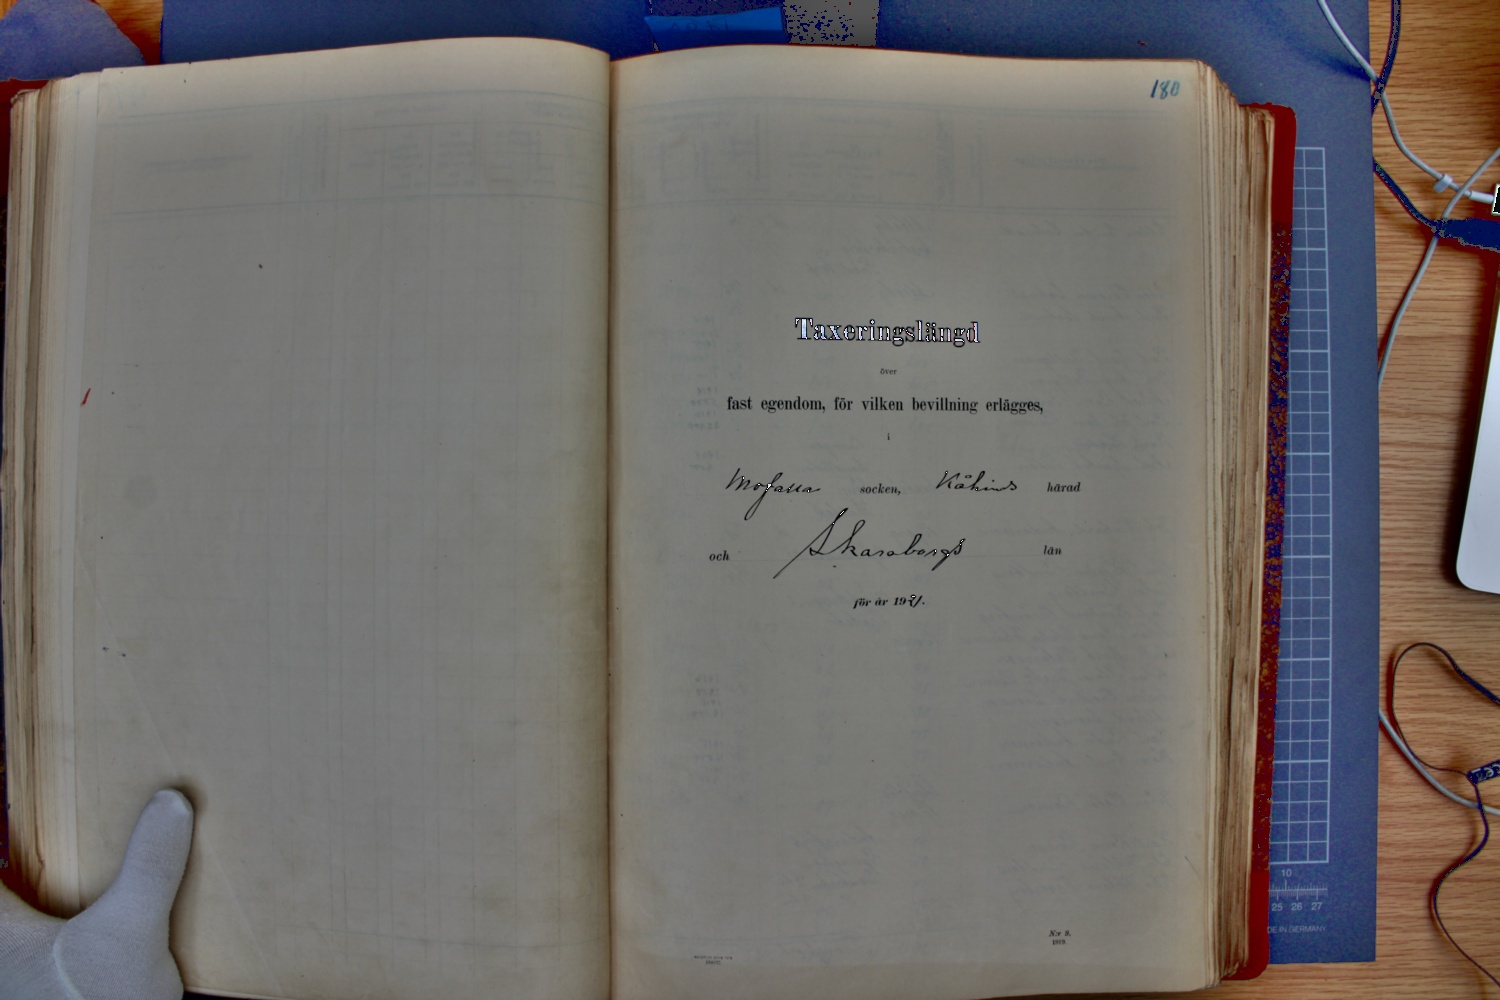 180
Taxeringslängd
över
fast egendom, för vilken bevillning erlägges,
i
Mofalla socken, Kåkinds härad
och Skaraborgs län
för år 1921.
N:r 9.
1919.
10
25 26 27
DE IN GERMANY